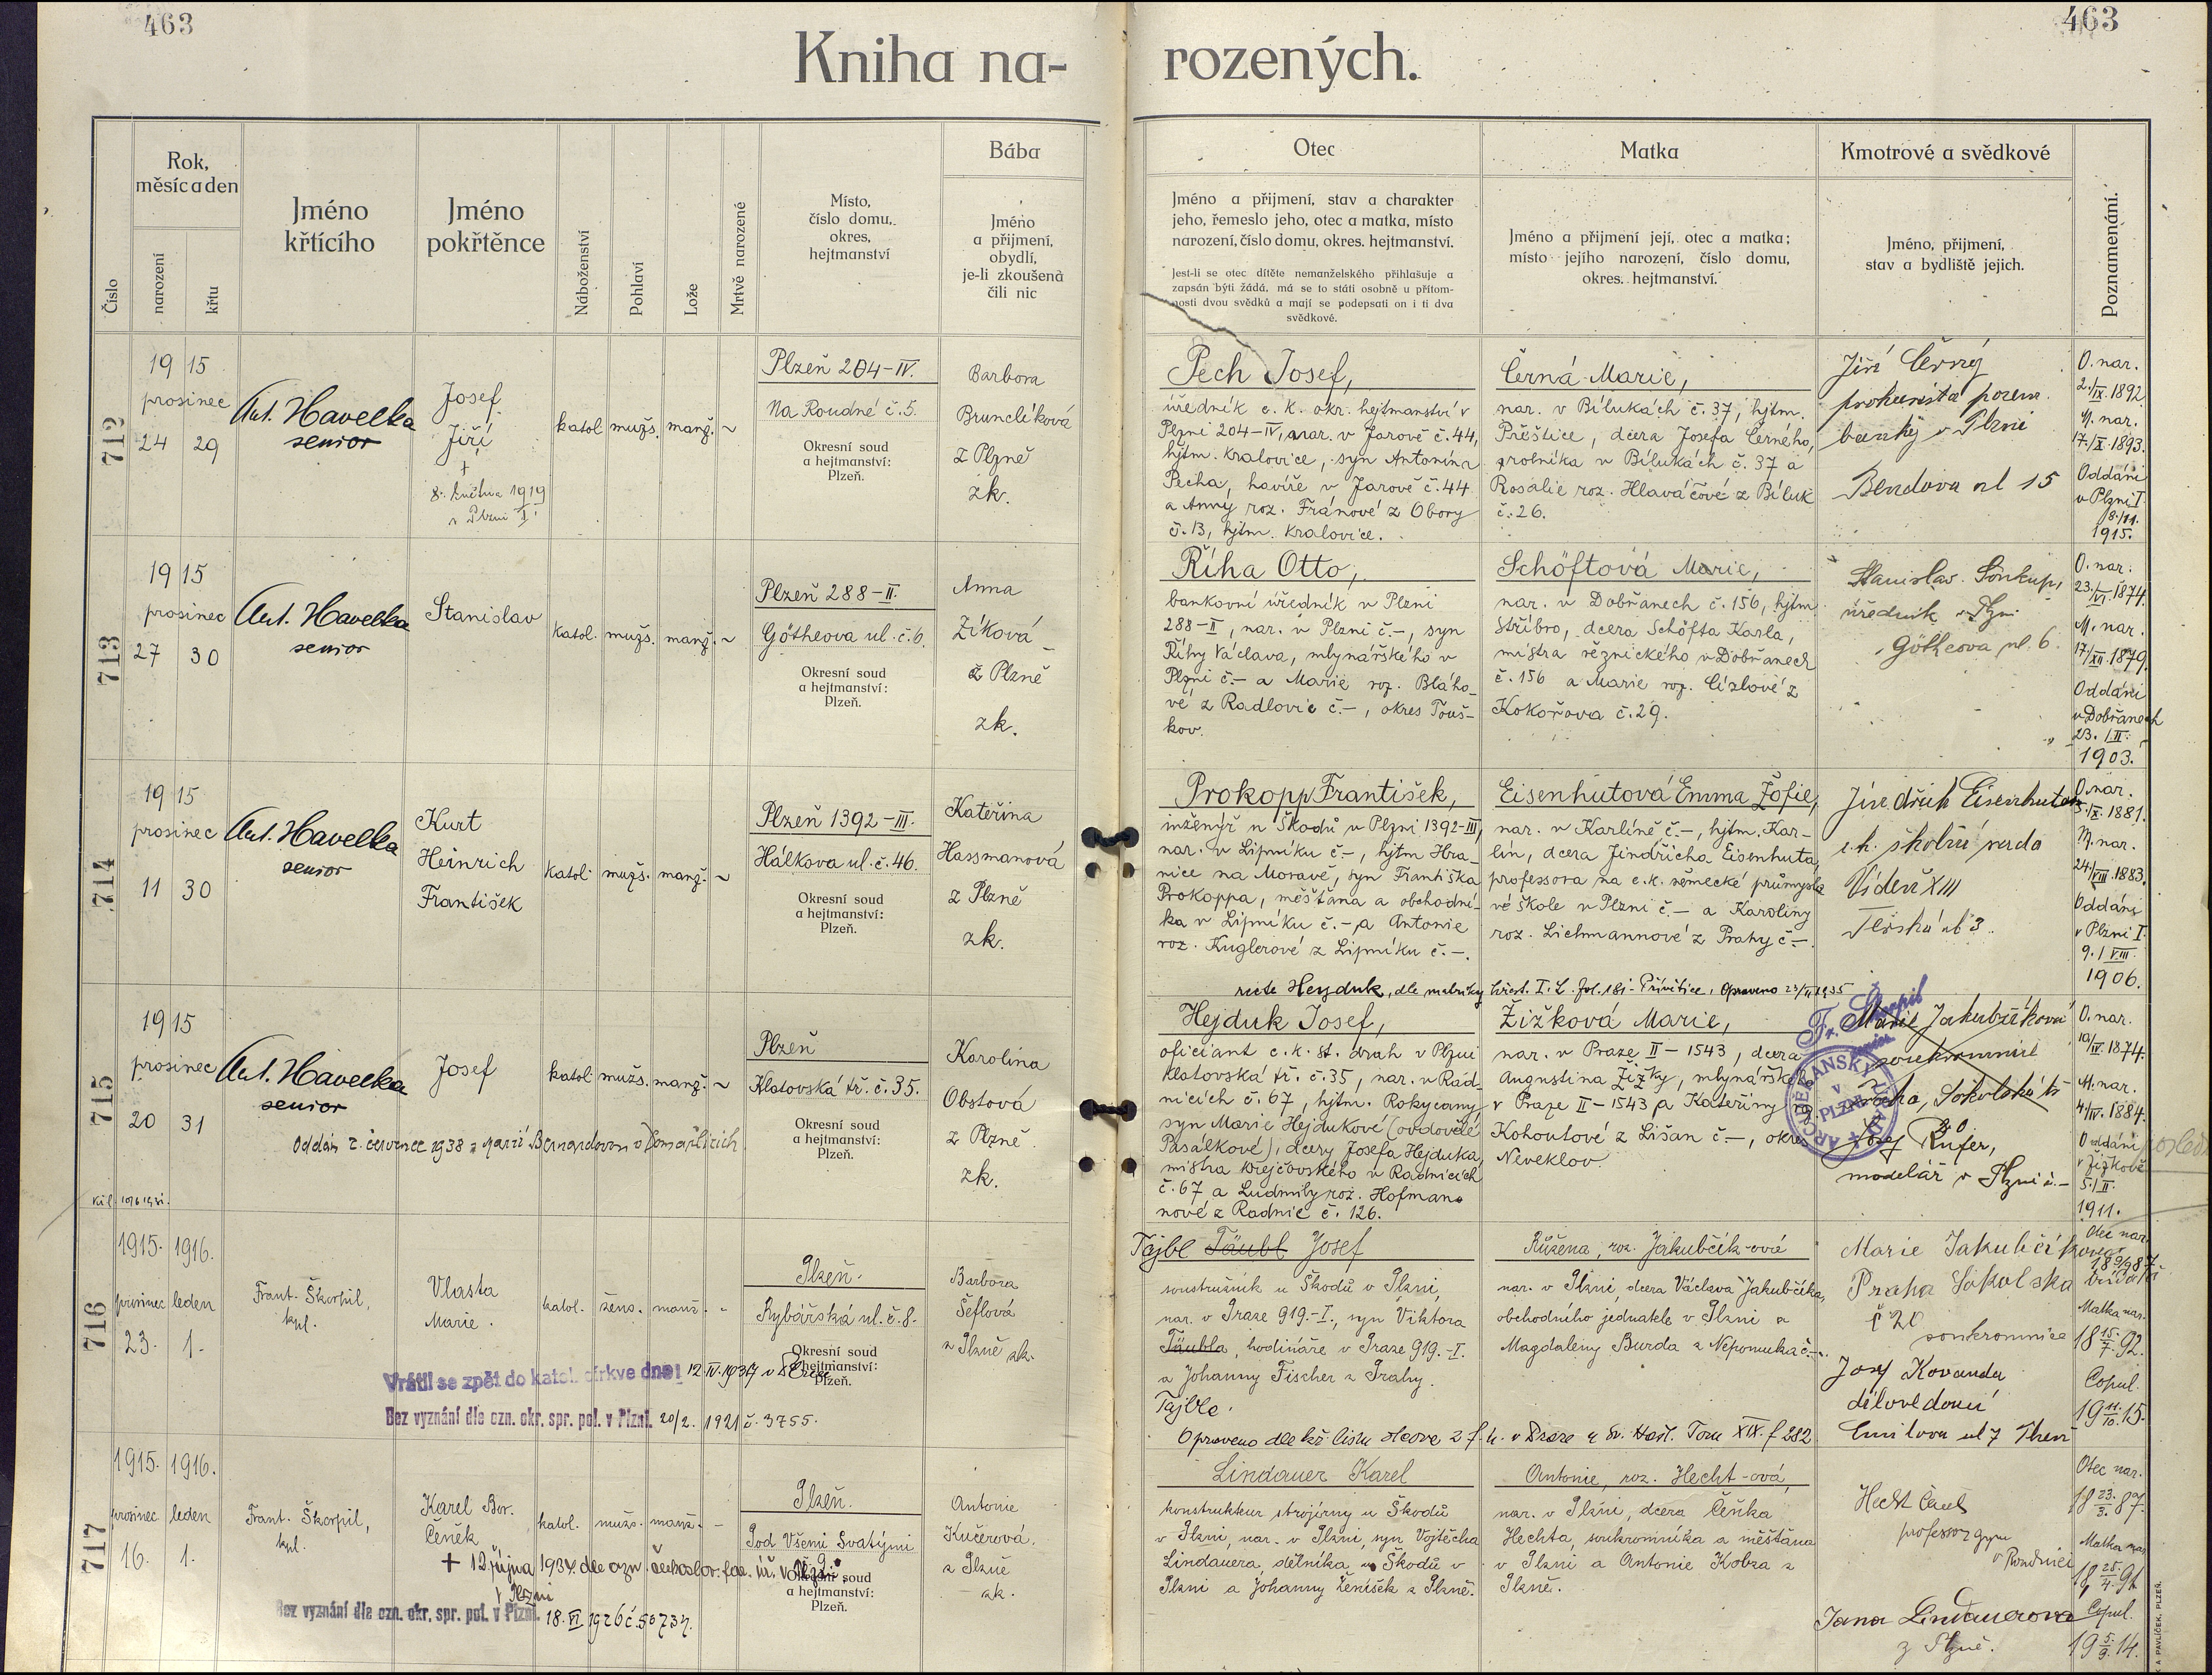 463
463
Kniha na-
rozených.
Číslo
Rok,
měsíc a den
narození
křtu
Jméno
křtícího
Jméno
pokřtěnce
Náboženství
Pohlaví
Lože
Mrtvě narozené
Místo,
číslo domu,
okres,
hejtmanství
Bába
Jméno
a přijmení,
obydlí,
je-li zkoušená
čili nic
Otec
Jméno a přijmení, stav a charakter
jeho, řemeslo jeho, otec a matka, místo
narození, číslo domu, okres. hejtmanství.
Jest-li se otec dítěte nemanželského přihlašuje a
zapsán býti žádá, má se to státi osobně u přítom-
nosti dvou svědků a mají se podepsati on i ti dva
svědkové.
Matka
Jméno a přijmení její, otec a matka;
místo jejího narození, číslo domu,
okres. hejtmanství.
Kmotrové a svědkové
Jméno, přijmení,
stav a bydliště jejich.
Poznamenání.
712
19 15
prosinec
24 29
Ant. Havelka
senior
Josef
Jiří
+
8. května 1919
v Plzni I.
katol. mužs. manž. ~
Plzeň 204-IV.
Na Roudné č. 5.
Okresní soud
a hejtmanství:
Plzeň.
Barbora
Brunclíková
z Plzně
zk.
Pech Josef,
úředník c. k. okr. hejtmanství v
Plzni 204-IV, nar. v Jarově č. 44,
hjtm. Kralovice, syn Antonína
Pecha, havíře v Jarově č. 44
a Anny roz. Fránové z Obory
č. 13, hjtm. Kralovice.
Černá Marie,
nar. v Bílukách č. 37, hjtm.
Přeštice, dcera Josefa Černého,
rolníka v Bílukách č. 37 a
Rosalie roz. Hlaváčové z Bíluk
č. 26.
Jiří Černý
prokurista pozem.
banky v Plzni
Bendova ul 15
O. nar.
2./IX. 1892
M. nar.
17./X. 1893.
Oddáni
v Plzni I.
8./11.
1915.
713
19 15
prosinec
27 30
Ant. Havelka
senior
Stanislav
katol. mužs. manž. ~
Plzeň 288-II.
Götheova ul. č. 6.
Okresní soud
a hejtmanství:
Plzeň.
Anna
Zíková
z Plzně
zk.
Říha Otto,
bankovní úředník v Plzni
288-II, nar. v Plzni č.-, syn
Říhy Václava, mlynářského v
Plzni č.- a Marie roz. Bláho-
vé z Radlovic č.-, okres Touš-
kov.
Schöftová Marie,
nar. v Dobřanech č. 156, hjtm.
Stříbro, dcera Schöfta Karla,
mistra řeznického v Dobřanech
č. 156 a Marie roz. Císlové z
Kokořova č. 29.
Stanislav Soukup,
úředník v Plzni
Götheova ul. 6.
O. nar.
23./VI. 1874.
M. nar.
17./XII. 1879.
Oddáni
v Dobřanech
23. / II.
1903.
714
19 15
prosinec
11 30
Ant. Havelka
senior
Kurt
Heinrich
František
katol. mužs. manž. ~
Plzeň 1392-III.
Hálkova ul. č. 46.
Okresní soud
a hejtmanství:
Plzeň.
Kateřina
Hassmanová
z Plzně
zk.
Prokopp František,
inženýr u Škodů v Plzni 1392-III,
nar. v Lipníku č.-, hjtm. Hra-
nice na Moravě, syn Františka
Prokoppa, měšťana a obchodní-
ka v Lipníku č.- a Antonie
roz. Kuglerové z Lipníku č.-.
Eisenhutová Emma Žofie,
nar. v Karlíně č.-, hjtm. Kar-
lín, dcera Jindřicha Eisenhuta,
professora na c. k. německé průmyslo-
vé škole v Plzni č.- a Karoliny
roz. Lichmannové z Prahy č.-.
Jindřich Eisenhut
c. k. školní rada
Vídeň XIII
O. nar.
5./IX. 1881.
M. nar.
24./VIII. 1883.
Oddáni
v Plzni I.
9. / VIII.
1906.
recte Hejduk, dle matriky křest. I. L. fol. 181 - Přívětice, Opraveno 23/II 1935
Fr. Škorpil
715
19 15
prosinec
20 31
Ant. Havelka
senior
Josef
katol. mužs. manž. ~
Oddán 2. července 1938 s Marií Bernardovou v Domažlicích
Plzeň
Klatovská tř. č. 35.
Okresní soud
a hejtmanství:
Plzeň.
Karolina
Obstová
z Plzně.
zk.
Hejduk Josef,
oficiant c. k. st. drah v Plzni
Klatovská tř. č. 35, nar. v Rad-
nicích č. 67, hjtm. Rokycany,
syn Marie Hejdukové (ovdovělé
Pasálkové), dcery Josefa Hejduka,
mistra krejčovského v Radnicích
č. 67 a Ludmily roz. Hofman-
nové z Radnic č. 126.
Žižková Marie,
nar. v Praze II - 1543, dcera
Augustina Žižky, mlynářského
v Praze II - 1543 a Kateřiny roz.
Kohoutové z Lišan č.-, okres
Neveklov.
ARCIDĚKANSKÝ ÚŘAD
v
PLZNI
Marie Jakubčíková
soukromnice
Praha, Sokolská tř.
20
Josef Rufer,
modelář v Plzni č.-
O. nar.
10/IV. 1874.
M. nar.
4/IV. 1884.
Oddáni
v Žižkově
5. / II.
1911.
716
1915. 1916.
prosinec leden
23. 1.
Frant. Škorpil,
kpl.
Vlasta
Marie.
katol. žens. manž. -
Vrátil se zpět do katol. církve dne 12. IV. 1939 v Plzni
Bez vyznání dle ozn. okr. spr. pol. v Plzni. 20/2. 1921 č. 3755.
Plzeň.
Rybářská ul. č. 8.
Okresní soud
a hejtmanství:
Plzeň.
Barbora
Šeflová
z Plzně zk.
Tajbl Täubl Josef
soustružník u Škodů v Plzni,
nar. v Praze 919.-I., syn Viktora
Täubla, hodináře v Praze 919.-I.
a Johanny Fischer z Prahy.
Tajbla.
Opraveno dle kř. listu
Růžena, roz. Jakubčík-ová
nar. v Plzni, dcera Václava Jakubčíka,
obchodního jednatele v Plzni a
Magdaleny Burda z Nepomuka č.-.
Marie Jakubčíkova
Praha Sokolská třída
č 20
soukromnice
Josef Kovanda
dílovedoucí
Emilova ul 7 Plzeň
Otec nar.
Matka nar.
18 15/7. 92.
Copul.
19 11/10. 15.
717
1915. 1916.
prosinec leden
16. 1.
Frant. Škorpil,
kpl.
Karel Bor.
Čeněk
katol. mužs. manž. -
+ 12. října 1934 dle ozn. českoslov. far. úř. v Plzni
v Plzni
Bez vyznání dle ozn. okr. spr. pol. v Plzni. 18. VI 1926 č. 50737.
Plzeň.
Pod Všemi Svatými
9.
Okresní soud
a hejtmanství:
Plzeň.
Antonie
Kučerová.
z Plzně
zk.
Lindauer Karel
konstrukteur strojírny u Škodů
v Plzni, nar. v Plzni, syn Vojtěcha
Lindauera, dělníka u Škodů v
Plzni a Johanny Ženíšek z Plzně.
Antonie, roz. Hecht-ová,
nar. v Plzni, dcera Čeňka
Hechta, soukromníka a měšťana
v Plzni a Antonie Kobza z
Plzně.
Hecht Čeněk
professor gymn
v Roudnici
Jana Lindauerova
z Plzně.
Otec nar.
18 23/3. 87.
Matka nar.
18 25/4. 91
Copul.
19 5/9. 14.
A PAVLÍČEK, PLZEŇ.